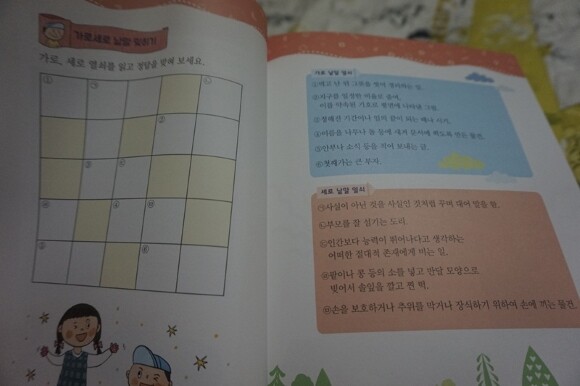 가로세로 낱말 맞히기
가로, 세로 열쇠를 읽고 정답을 맞혀 보세요.
① ㉠ ㉡
② ㉢
㉣ ④ ㉤
⑤ ⑥
가로 낱말 열쇠
①먹고 난 뒤 그릇을 씻어 정리하는 일.
②지구를 일정한 비율로 줄여,
이를 약속된 기호로 평면에 나타낸 그림.
③정해진 기간이나 일의 끝이 되는 때나 시기.
④이름을 나무나 돌 등에 새겨 문서에 찍도록 만든 물건.
⑤안부나 소식 등을 적어 보내는 글.
⑥첫째가는 큰 부자.
세로 낱말 열쇠
㉠사실이 아닌 것을 사실인 것처럼 꾸며 대어 말을 함.
㉡부모를 잘 섬기는 도리.
㉢인간보다 능력이 뛰어나다고 생각하는
어떠한 절대적 존재에게 비는 일.
㉣팥이나 콩 등의 소를 넣고 반달 모양으로
빚어서 솔잎을 깔고 찐 떡.
㉤손을 보호하거나 추위를 막거나 장식하기 위하여 손에 끼는 물건.